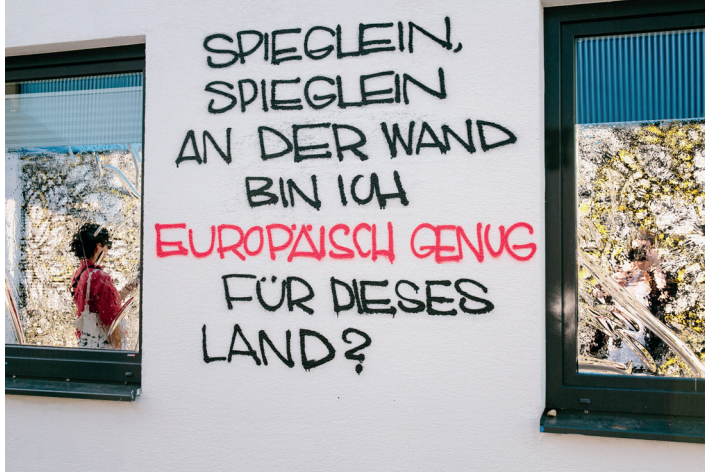 SPIEGLEIN,
SPIEGLEIN
AN DER WAND
BIN ICH
EUROPÄISCH GENUG
FÜR DIESES
LAND?